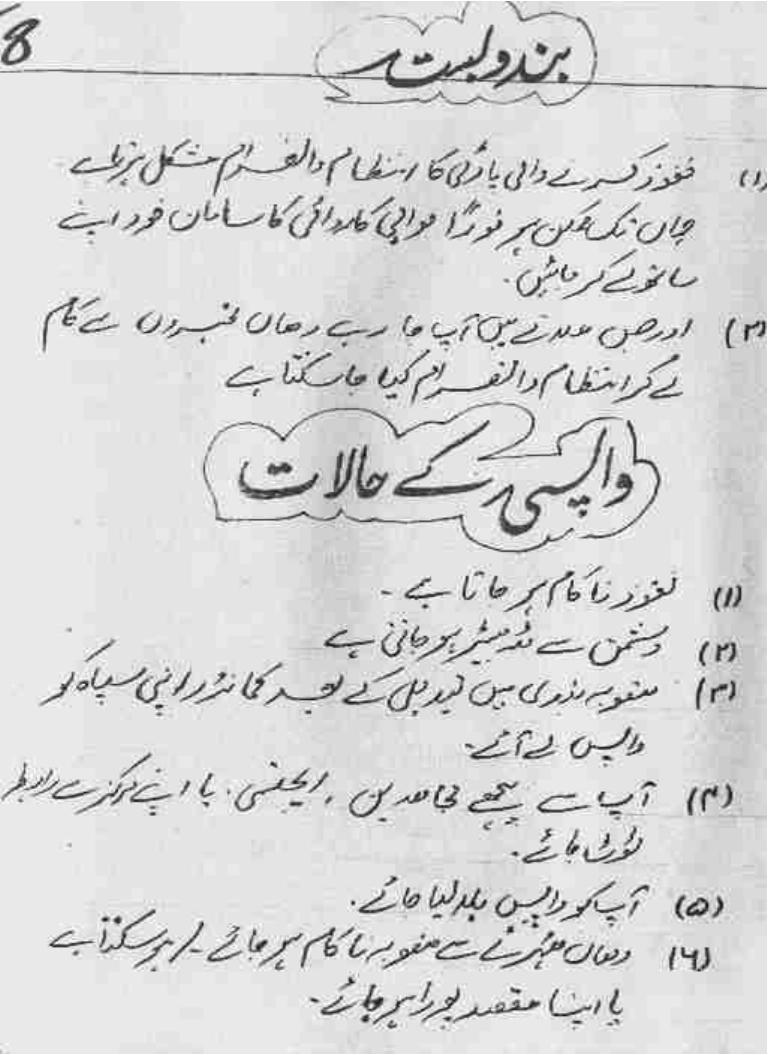 8
بندوبست
(۱) نفوذ کرنے والی پارٹی کا انتظام والضرام مشکل ہوتا ہے
جہاں تک ممکن ہو فوراً جوابی کاروائی کا سامان خود اپنے
ساتھ لے کر جائیں۔
(۲) اور جس علاقے میں آپ جا رہے وھاں مخبروں سے کام
لے کر انتظام والنصرام کیا جاسکتا ہے
واپسی کے حالات
(۱) نفوذ ناکام ہو جاتا ہے۔
(۲) دشمن سے مڈبھیڑ ہو جاتی ہے
(۳) منصوبہ بندی میں تبدیلی کے بعد کمانڈر اپنی سپاہ کو
واپس لے آئے۔
(۴) آپ سے پیچھے مجاھدین، ایجنسی، یا اپنے مرکز سے رابطہ
ٹوٹ جائے۔
(۵) آپ کو واپس بلا لیا جائے۔
(۶) وھاں ٹھہرنے سے منصوبہ ناکام ہو جائے / ہو سکتا ہے
یا اپنا مقصد پورا ہو جائے۔